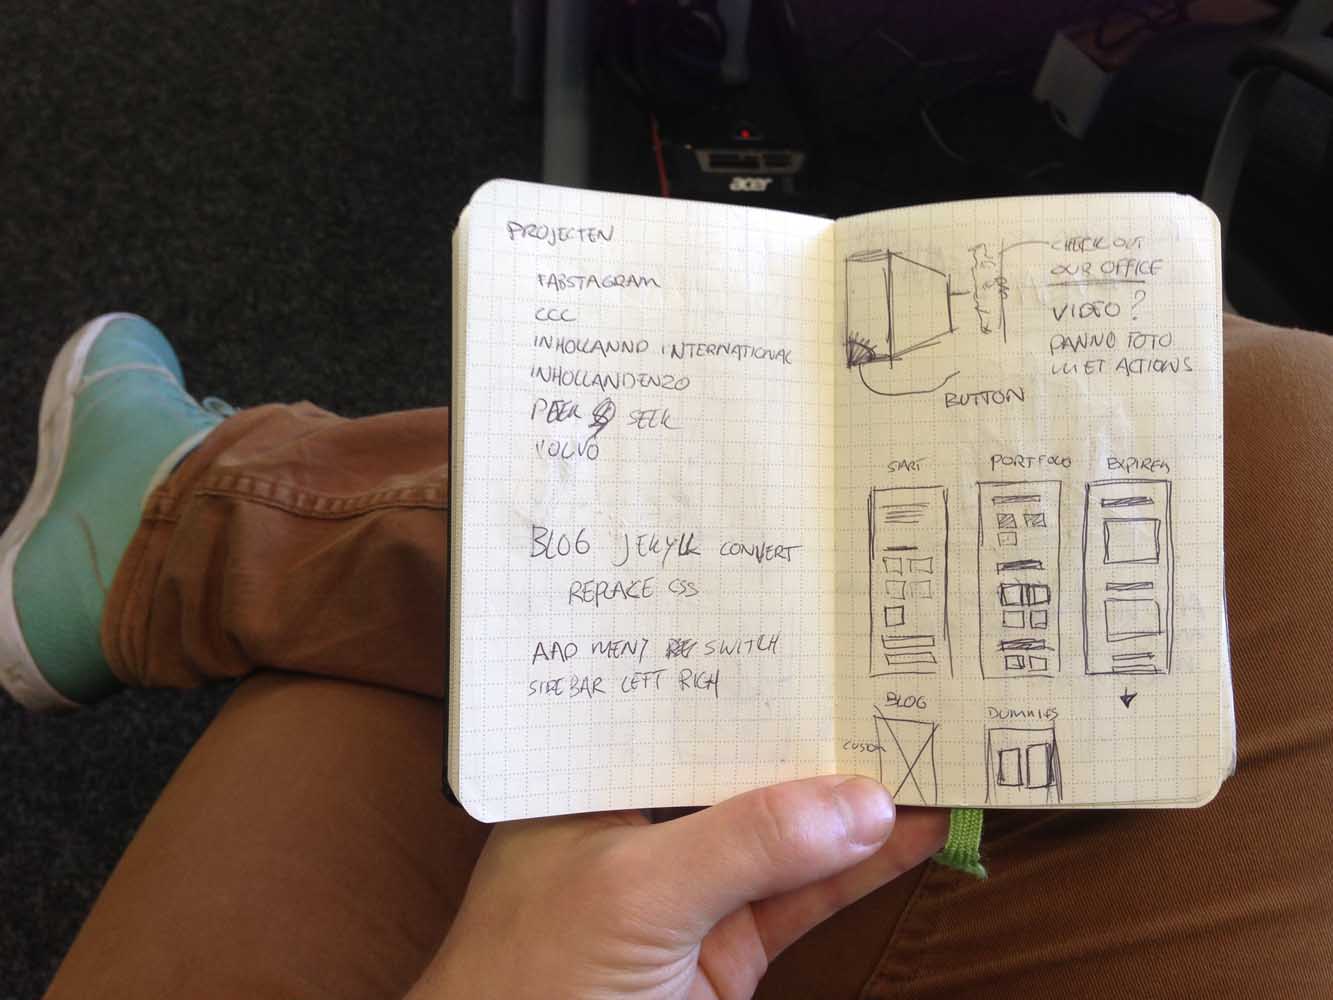 PROJECTEN
FABSTAGRAM
CCC
INHOLLANND INTERNATIONAL
INHOLLANDENZO
PEEK & SEEK
VOLVO
BLOG JEKYLL CONVERT
REPLACE CSS
ADD MENY SWITCH
SIDEBAR LEFT RIGH
CHECK OUT
OUR OFFICE
VIDEO?
PANNO FOTO
MET ACTIONS
BUTTON
START PORTFOLIO
BLOG DUMMIES
CUSTOM
acer